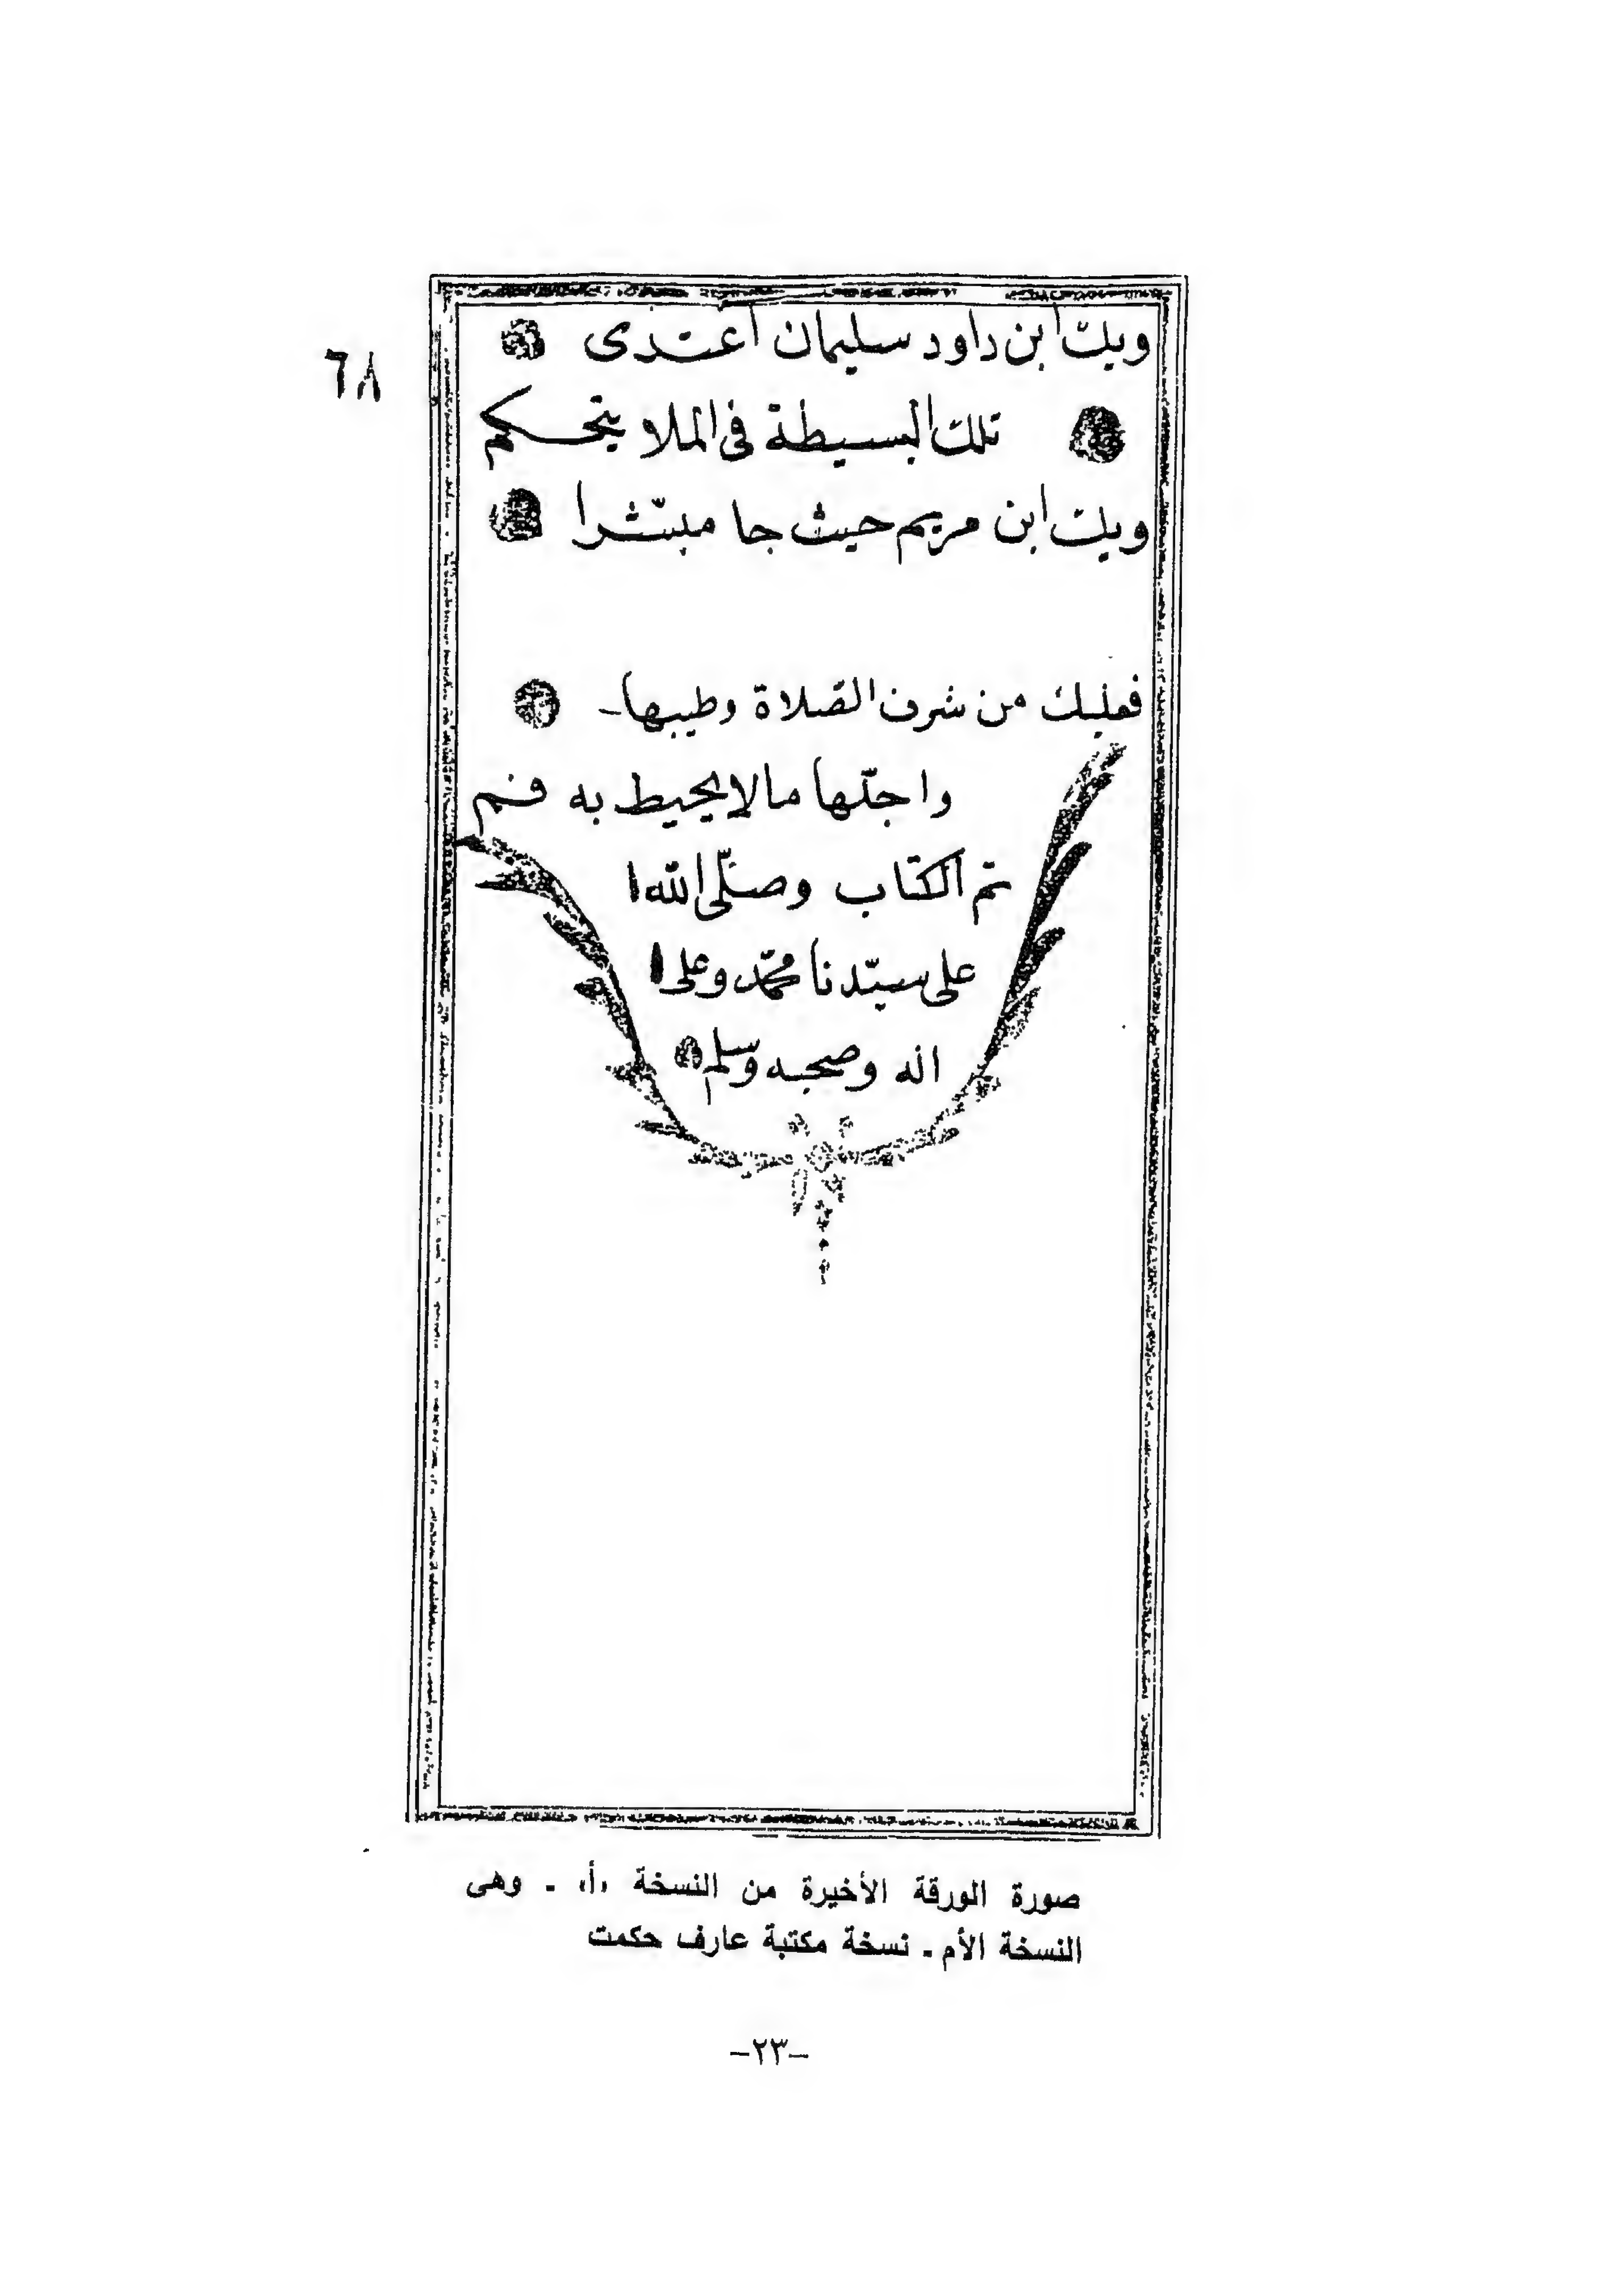 وبك ابن داود سليمان اغتدى
٦٨
تلك البسيطة فى الملا يتحكم
وبك ابن مريم حيث جا مبشرا
فعليك من شرف الصلاة وطيبها
واجلّها مالا يحيط به فم
تم الكتاب وصلّى الله
على سيّدنا محمّد وعلى
اله وصحبه وسلم
صورة الورقة الأخيرة من النسخة «أ» ـ وهى
النسخة الأم ـ نسخة مكتبة عارف حكمت
-٢٣-